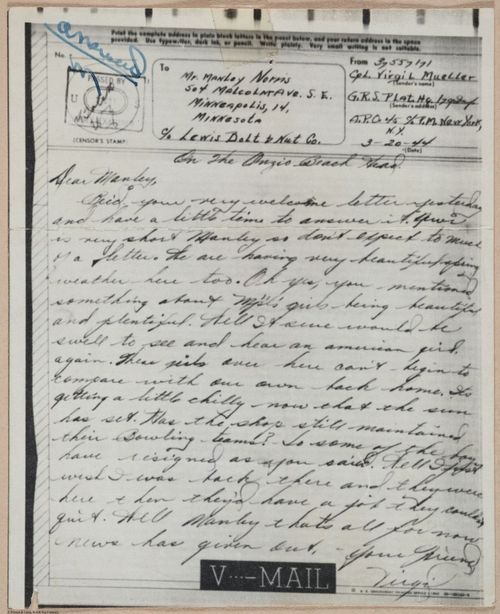 answered
Print the complete address in plain block letters in the panel below, and your return address in the space
provided. Use typewriter, dark ink, or pencil. Write plainly. Very small writing is not suitable.
No.
PASSED BY
U
(CENSOR'S STAMP)
To
Mr. Manley Norris
504 Malcolm Ave. S.E.
Minneapolis, 14,
Minnesota
c/o Lewis Bolt & Nut Co.
From
Cpl. Virgil Mueller
(Sender's name)
G.R.S. Plat. Hq.
(Sender's address)
A.P.O. P.M. New York,
N.Y.
3-20-44
(Date)
On The Anzio Beach Head
Dear Manley,
your very welcome letter yesterday
and have a little time to answer it.
is very short Manley so don't expect to much
of a letter. We are having very beautiful spring
weather here too. Oh yes, you mentioned
something about girls being beautiful
and plentiful. Well it sure would be
swell to see and hear an american girl
again. These over here can't begin to
compare with our own back home. Its
getting a little chilly now that the sun
has set. Has the shop still maintained
their bowling teams? So some of the boys
have resigned as you said. Well I just
wish I was back there and they were
here then they'd have a job they couldn't
quit. Well Manley thats all for now
news has given out. Your Friend
Virgil
V···—MAIL